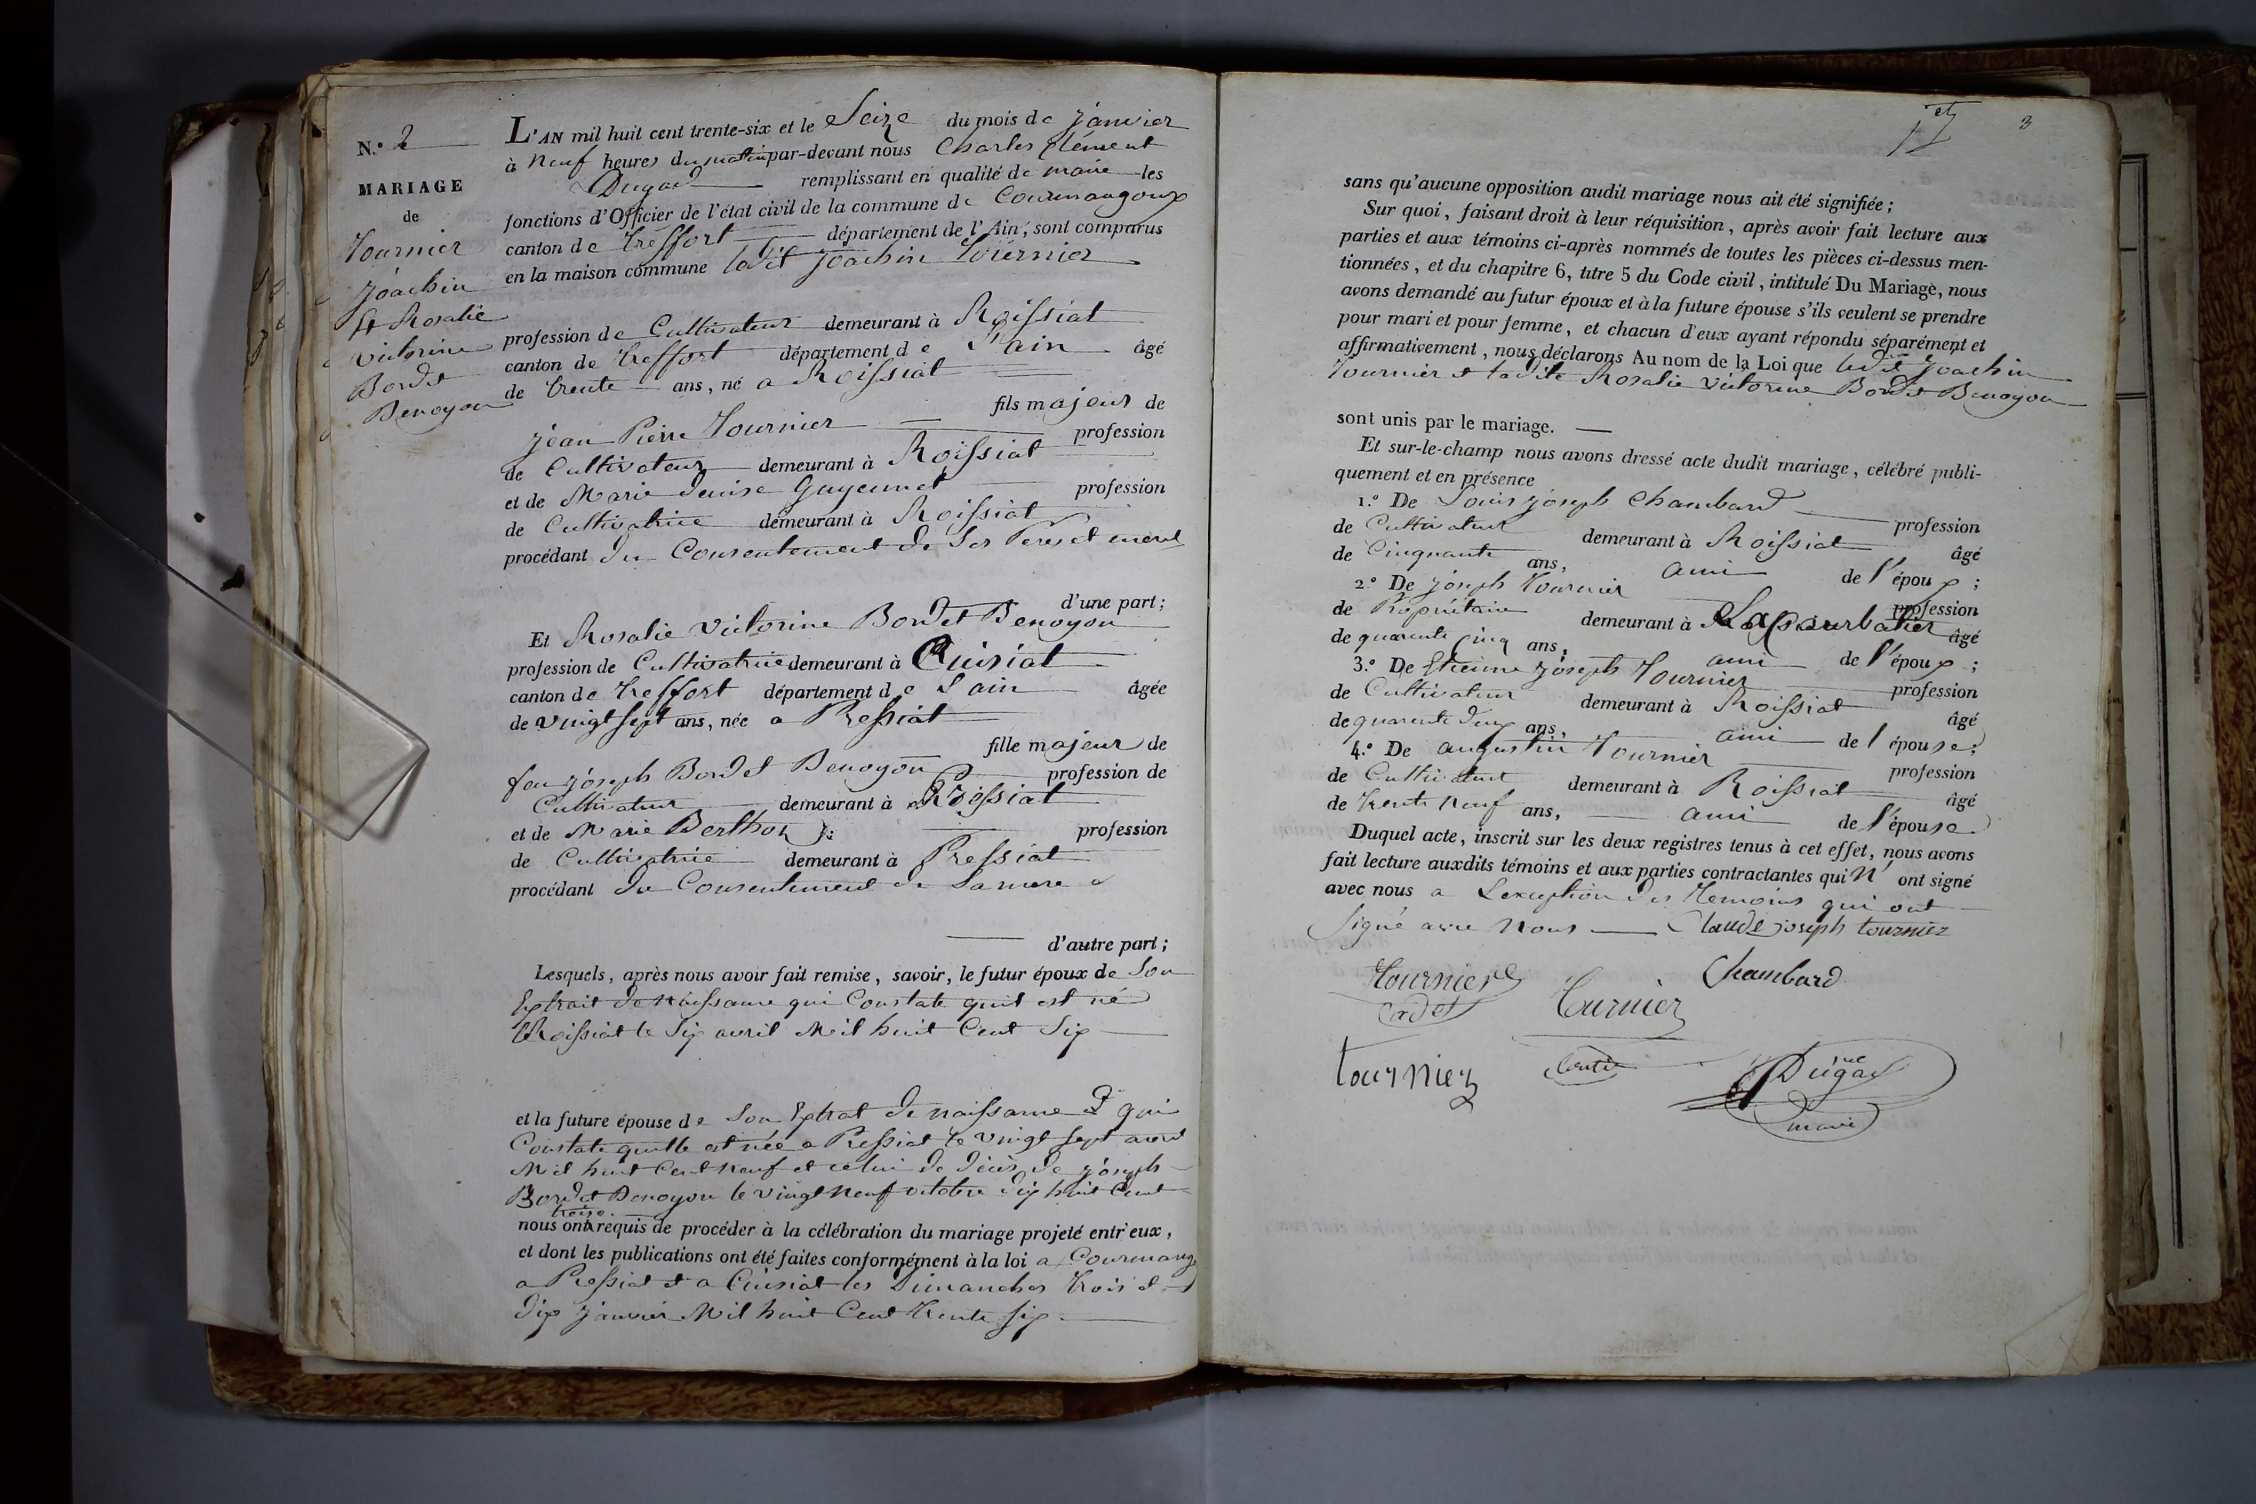 N.° 2
MARIAGE
de
Tournier
Joachin
Et Rosalie
victorine
Bordet
Benoyon
L'AN mil huit cent trente-six et le Seize du mois de janvier
à neuf heures du matin par-devant nous Charles Clément
Dugad remplissant en qualité de maire les
fonctions d'Officier de l'état civil de la commune de Courmangoux
canton de treffort département de l'Ain, sont comparus
en la maison commune ledit Joachin Tournier
profession de Cultivateur demeurant à Roissiat
canton de treffort département de l'ain âgé
de trente ans, né a Roissiat
fils majeur de
jean Pierre Tournier profession
de Cultivateur demeurant à Roissiat
et de Marie denise Guyennet profession
de Cultivatrice demeurant à Roissiat
procédant du Consentement de Ses Peres et mere
d'une part;
Et Rosalie victorine Bordet Benoyon
profession de Cultivatrice demeurant à Cuisiat
canton de treffort département de l'ain âgée
de vingt sept ans, née a Pressiat
fille majeur de
feu joseph Bordet Benoyon profession de
Cultivateur demeurant à Pressiat
et de Marie Berthod profession
de Cultivatrice demeurant à Pressiat
procédant du Consentement de Sa mere
d'autre part;
Lesquels, après nous avoir fait remise, savoir, le futur époux de Son
Extrait de naissance qui Constate quil est né
a Roissiat le Six avril Mil huit Cent Six
et la future épouse de Son Extrat de naissance qui
Constate quelle est née a Pressiat le vingt sept avril
Mil huit Cent neuf et celui de décès de joseph
Bordet Benoyon le vingt neuf octobre dix huit Cent
treize
nous ont requis de procéder à la célébration du mariage projeté entr'eux,
et dont les publications ont été faites conformément à la loi a Courmang
a Pressiat et a Cuisiat les Dimanches trois et
dix janvier Mil huit Cent trente Six
3
sans qu'aucune opposition audit mariage nous ait été signifiée;
Sur quoi, faisant droit à leur réquisition, après avoir fait lecture aux
parties et aux témoins ci-après nommés de toutes les pièces ci-dessus men-
tionnées, et du chapitre 6, titre 5 du Code civil, intitulé Du Mariage, nous
avons demandé au futur époux et à la future épouse s'ils veulent se prendre
pour mari et pour femme, et chacun d'eux ayant répondu séparément et
affirmativement, nous déclarons Au nom de la Loi que ledit Joachin
Tournier et ladite Rosalie victorine Bordet Benoyon
sont unis par le mariage.
Et sur-le-champ nous avons dressé acte dudit mariage, célébré publi-
quement et en présence
1.° De Louis joseph Chambard profession
de Cultivateur demeurant à Roissiat âgé
de Cinquante ans, ami de l'époux;
2.° De joseph Tournier profession
de Propriétaire demeurant à âgé
de quarente Cinq ans, ami de l'époux;
3.° De Etienne joseph Tournier profession
de Cultivateur demeurant à Roissiat âgé
de quarente deux ans, ami de l'épouse;
4.° De augustin Tournier profession
de Cultivateur demeurant à Roissiat âgé
de trente neuf ans, ami de l'épouse
Duquel acte, inscrit sur les deux registres tenus à cet effet, nous avons
fait lecture auxdits témoins et aux parties contractantes qui n' ont signé
avec nous a Lexception des temoins qui ont
Signé avec nous Claude joseph tournier
tournier Chambard
Cadet turnier
tournier Dugad
maire